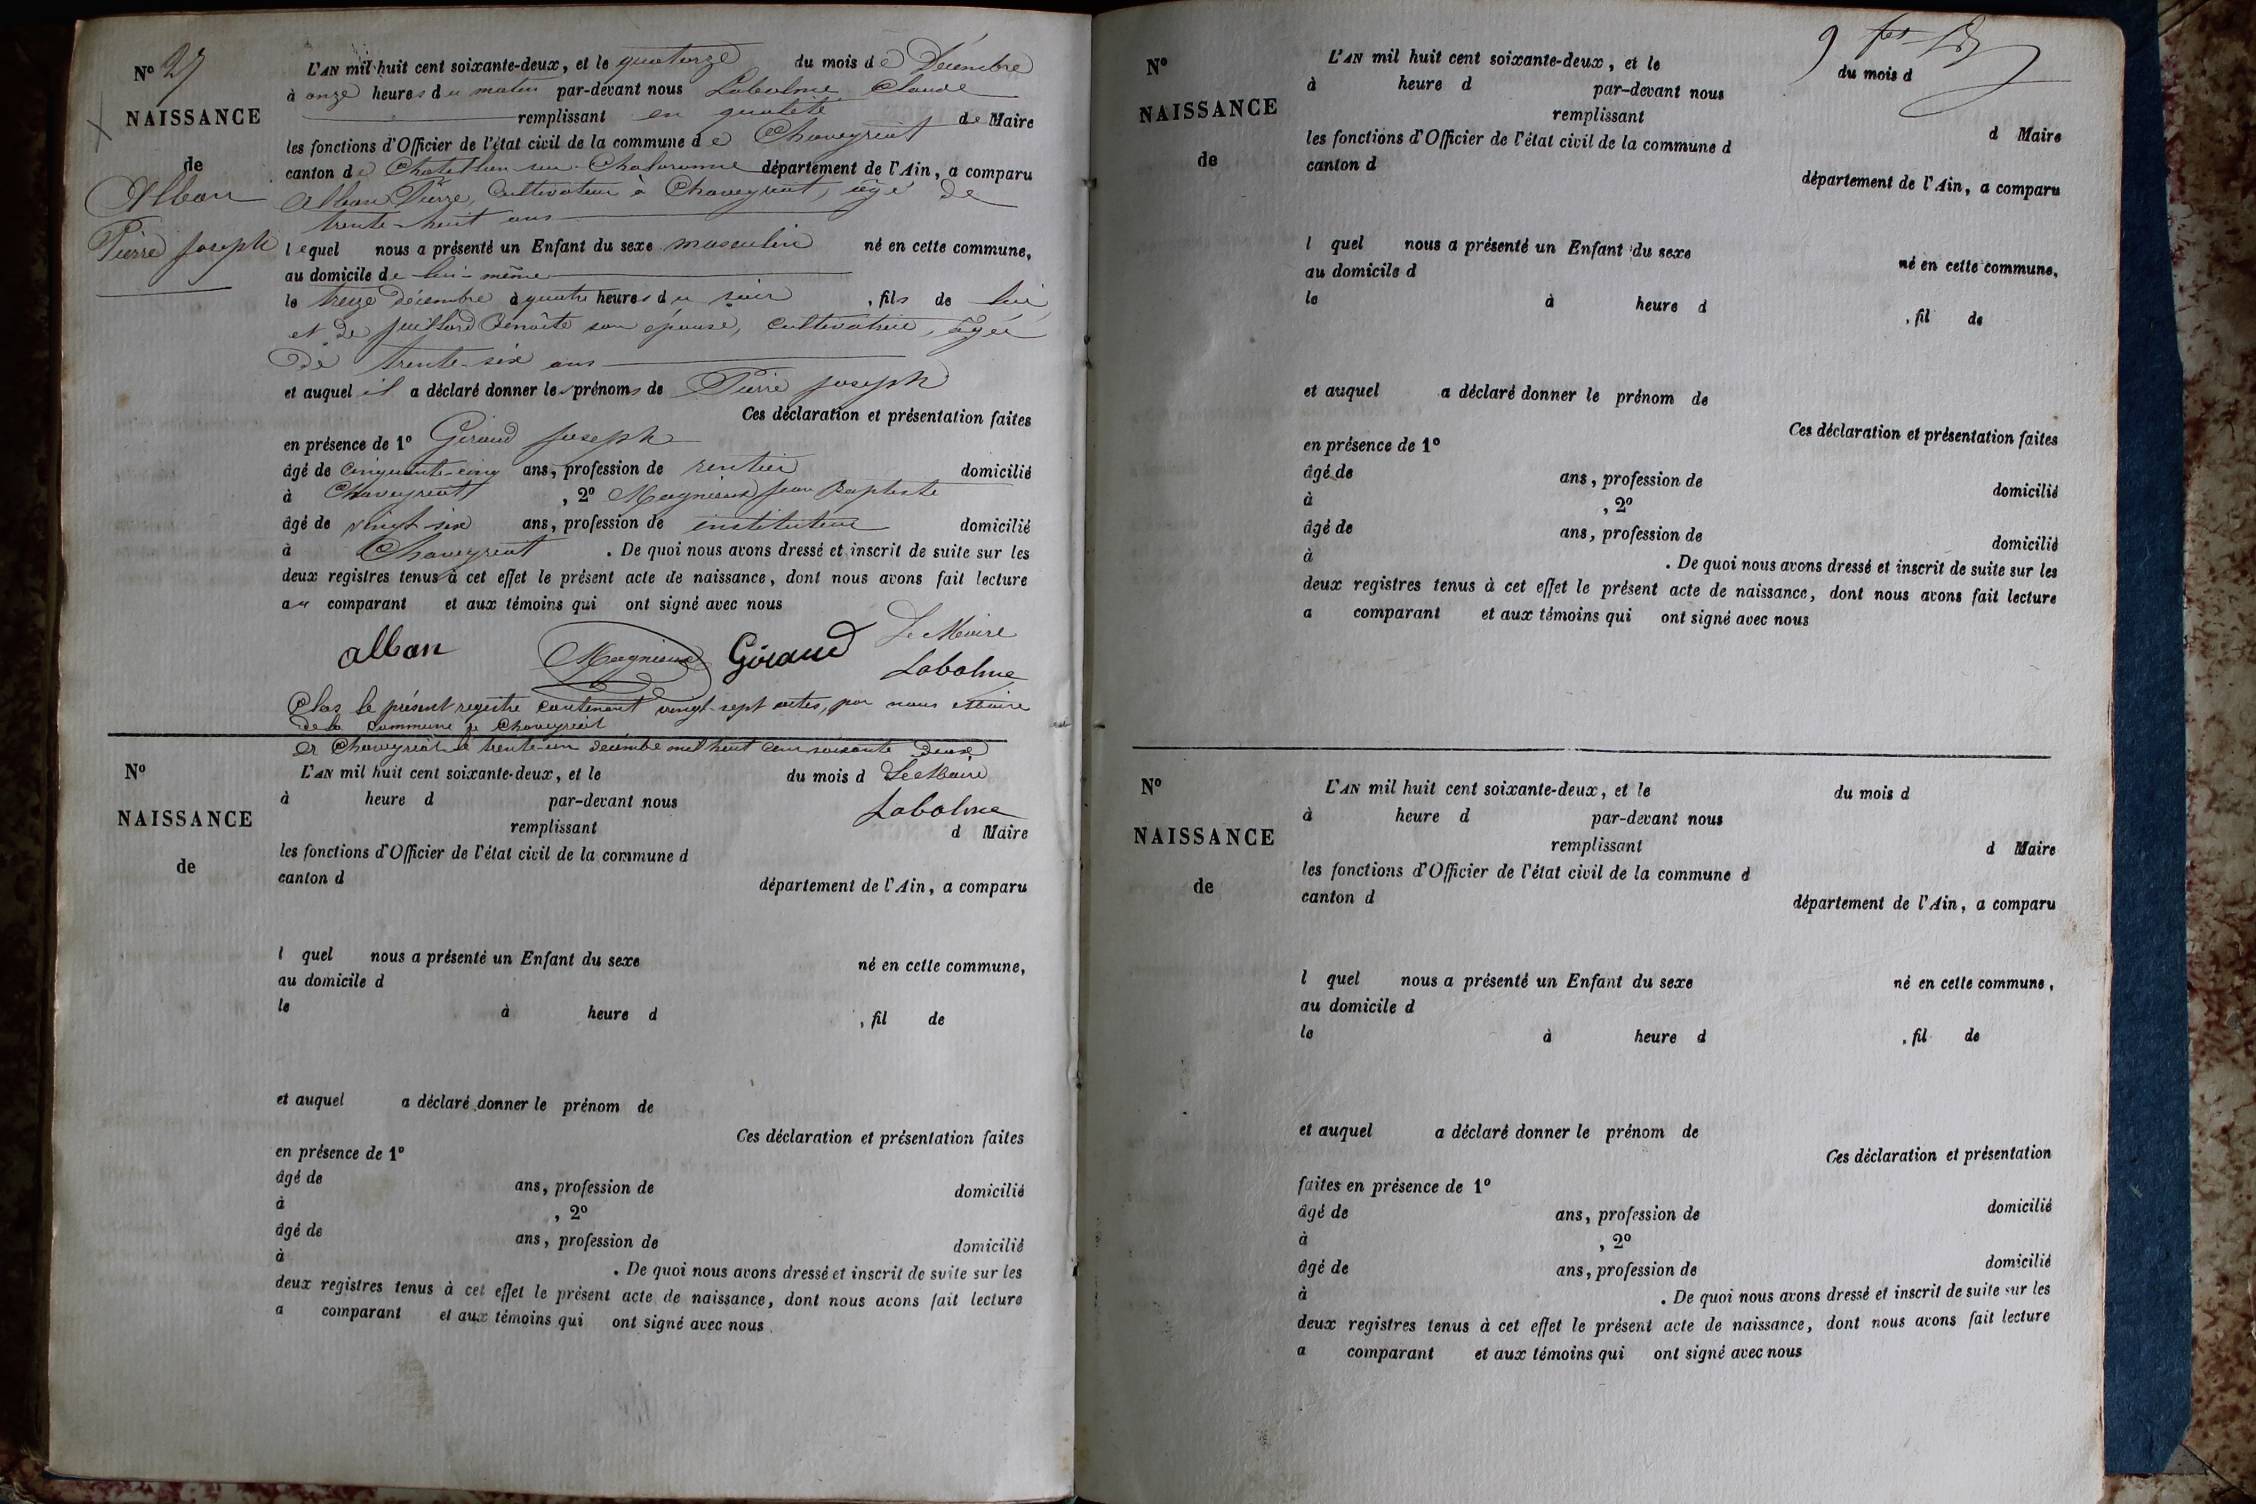 Nº 27
NAISSANCE
de
Alban
Pierre Joseph
L'AN mil huit cent soixante-deux, et le quatorze du mois de Décembre
à onze heures du matin par-devant nous Labalme Claude
remplissant en qualité de Maire
les fonctions d'Officier de l'état civil de la commune de Chaveyriat
canton de Chatillon sur Chalaronne département de l'Ain, a comparu
Alban Pierre, Cultivateur à Chaveyriat, âgé de
trente-huit ans
lequel nous a présenté un Enfant du sexe masculin né en cette commune,
au domicile de lui-même
le treize décembre à quatre heures du soir, fils de lui
et de Juillard Benoîte son épouse, cultivatrice, âgée
de trente-six ans
et auquel il a déclaré donner les prénoms de Pierre Joseph
Ces déclaration et présentation faites
en présence de 1º Giraud Joseph
âgé de cinquante-cinq ans, profession de rentier domicilié
à Chaveyriat, 2º Magnieux Jean Baptiste
âgé de vingt-six ans, profession de instituteur domicilié
à Chaveyriat. De quoi nous avons dressé et inscrit de suite sur les
deux registres tenus à cet effet le présent acte de naissance, dont nous avons fait lecture
au comparant et aux témoins qui ont signé avec nous
Le Maire
alban Magnieux Giraud Labalme
Clos le présent registre contenant vingt-sept actes, par nous Maire
de la Commune de Chaveyriat
à Chaveyriat le trente-un décembre mil huit cent soixante deux
Le Maire
Labalme
Nº
NAISSANCE
de
L'AN mil huit cent soixante-deux, et le du mois d
à heure d par-devant nous
remplissant d Maire
les fonctions d'Officier de l'état civil de la commune d
canton d département de l'Ain, a comparu
l quel nous a présenté un Enfant du sexe né en cette commune,
au domicile d
le à heure d , fil de
et auquel a déclaré donner le prénom de
Ces déclaration et présentation faites
en présence de 1º
âgé de ans, profession de domicilié
à , 2º
âgé de ans, profession de domicilié
à . De quoi nous avons dressé et inscrit de suite sur les
deux registres tenus à cet effet le présent acte de naissance, dont nous avons fait lecture
a comparant et aux témoins qui ont signé avec nous
9
Nº
NAISSANCE
de
L'AN mil huit cent soixante-deux, et le du mois d
à heure d par-devant nous
remplissant d Maire
les fonctions d'Officier de l'état civil de la commune d
canton d département de l'Ain, a comparu
l quel nous a présenté un Enfant du sexe né en cette commune,
au domicile d
le à heure d , fil de
et auquel a déclaré donner le prénom de
Ces déclaration et présentation faites
en présence de 1º
âgé de ans, profession de domicilié
à , 2º
âgé de ans, profession de domicilié
à . De quoi nous avons dressé et inscrit de suite sur les
deux registres tenus à cet effet le présent acte de naissance, dont nous avons fait lecture
a comparant et aux témoins qui ont signé avec nous
Nº
NAISSANCE
de
L'AN mil huit cent soixante-deux, et le du mois d
à heure d par-devant nous
remplissant d Maire
les fonctions d'Officier de l'état civil de la commune d
canton d département de l'Ain, a comparu
l quel nous a présenté un Enfant du sexe né en cette commune,
au domicile d
le à heure d , fil de
et auquel a déclaré donner le prénom de
Ces déclaration et présentation
faites en présence de 1º
âgé de ans, profession de domicilié
à , 2º
âgé de ans, profession de domicilié
à . De quoi nous avons dressé et inscrit de suite sur les
deux registres tenus à cet effet le présent acte de naissance, dont nous avons fait lecture
a comparant et aux témoins qui ont signé avec nous